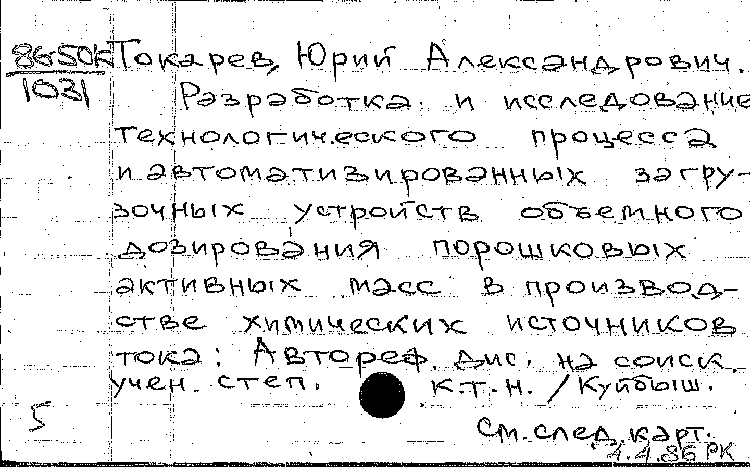 86-50к Токарев, Юрий Александрович.
1031
Разработка и исследование
технологического процесса
и автоматизированных загру-
зочных устройств объемного
дозирования порошковых
активных масс в производ-
стве химических источников
тока: Автореф. дис. на соиск.
учен. степ. к.т.н. / Куйбыш.
5
См. след. карт.
1.4.86 РК